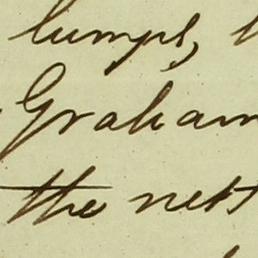 lumps,
Graham
the nett